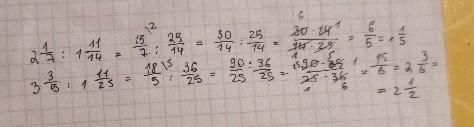 2 1/7 : 1 11/14 = 15/7 \2 : 25/14 = 30/14 : 25/14 = 30 · 14 / 14 · 25 = 6/5 = 1 1/5
3 3/5 : 1 11/25 = 18/5 \5 : 36/25 = 90/25 : 36/25 = 90 · 25 / 25 · 36 = 15/6 = 2 3/6 =
= 2 1/2